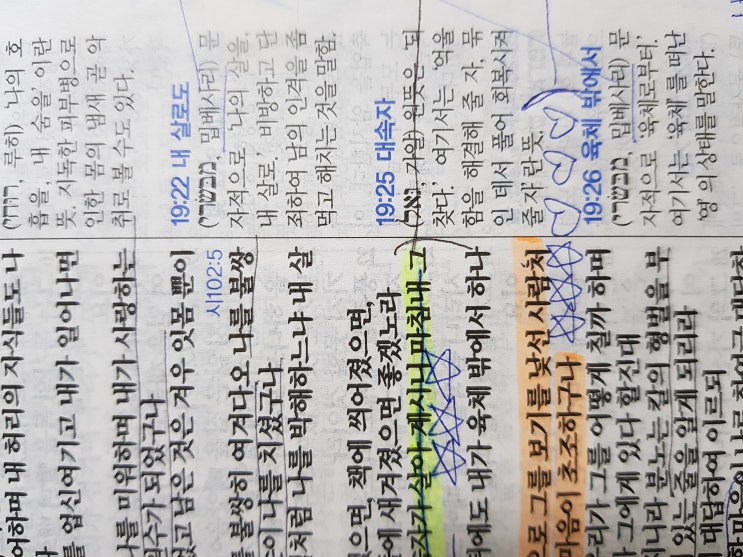 어하며 내 허리의 자식들도 나
를 업신여기고 내가 일어나면
나를 미워하며 내가 사랑하는
수가 되었구나
없고 남은 것은 겨우 잇몸 뿐이
를 불쌍히 여겨다오 나를 불쌍
이 나를 치셨구나
처럼 나를 박해하느냐 내 살
으면, 책에 씌어졌으면,
에 새겨졌으면 좋겠노라
자가 살아 계시니 마침내 그
뒤에도 내가 육체 밖에서 하나
으로 그를 보기를 낯선 사람처
마음이 초조하구나
리가 그를 어떻게 칠까 하며
그에게 있다 할진대
니라 분노는 칼의 형벌을 부
있는 줄을 알게 되리라
대답하여 이르되
(רוחי, 루히) '나의 호
흡을, 내 숨을' 이란
뜻. 지독한 피부병으로
인한 몸의 냄새 곧 악
취로 볼 수도 있다.
시102:5
19:22 내 살로도
(מבשרי, 밉베사리) 문
자적으로 '나의 살을,
내 살로.' 비방하고 단
죄하여 남의 인격을 좀
먹고 해치는 것을 말함.
19:25 대속자
(גאל, 가알) 원뜻은 '되
찾다.' 여기서는 '억울
함을 해결해 줄 자, 묶
인 데서 풀어 회복시켜
줄 자'란 뜻.
19:26 육체 밖에서
(מבשרי, 밉베사리) 문
자적으로 '육체로부터.'
여기서는 '육체'를 떠난
'영'의 상태를 말한다.